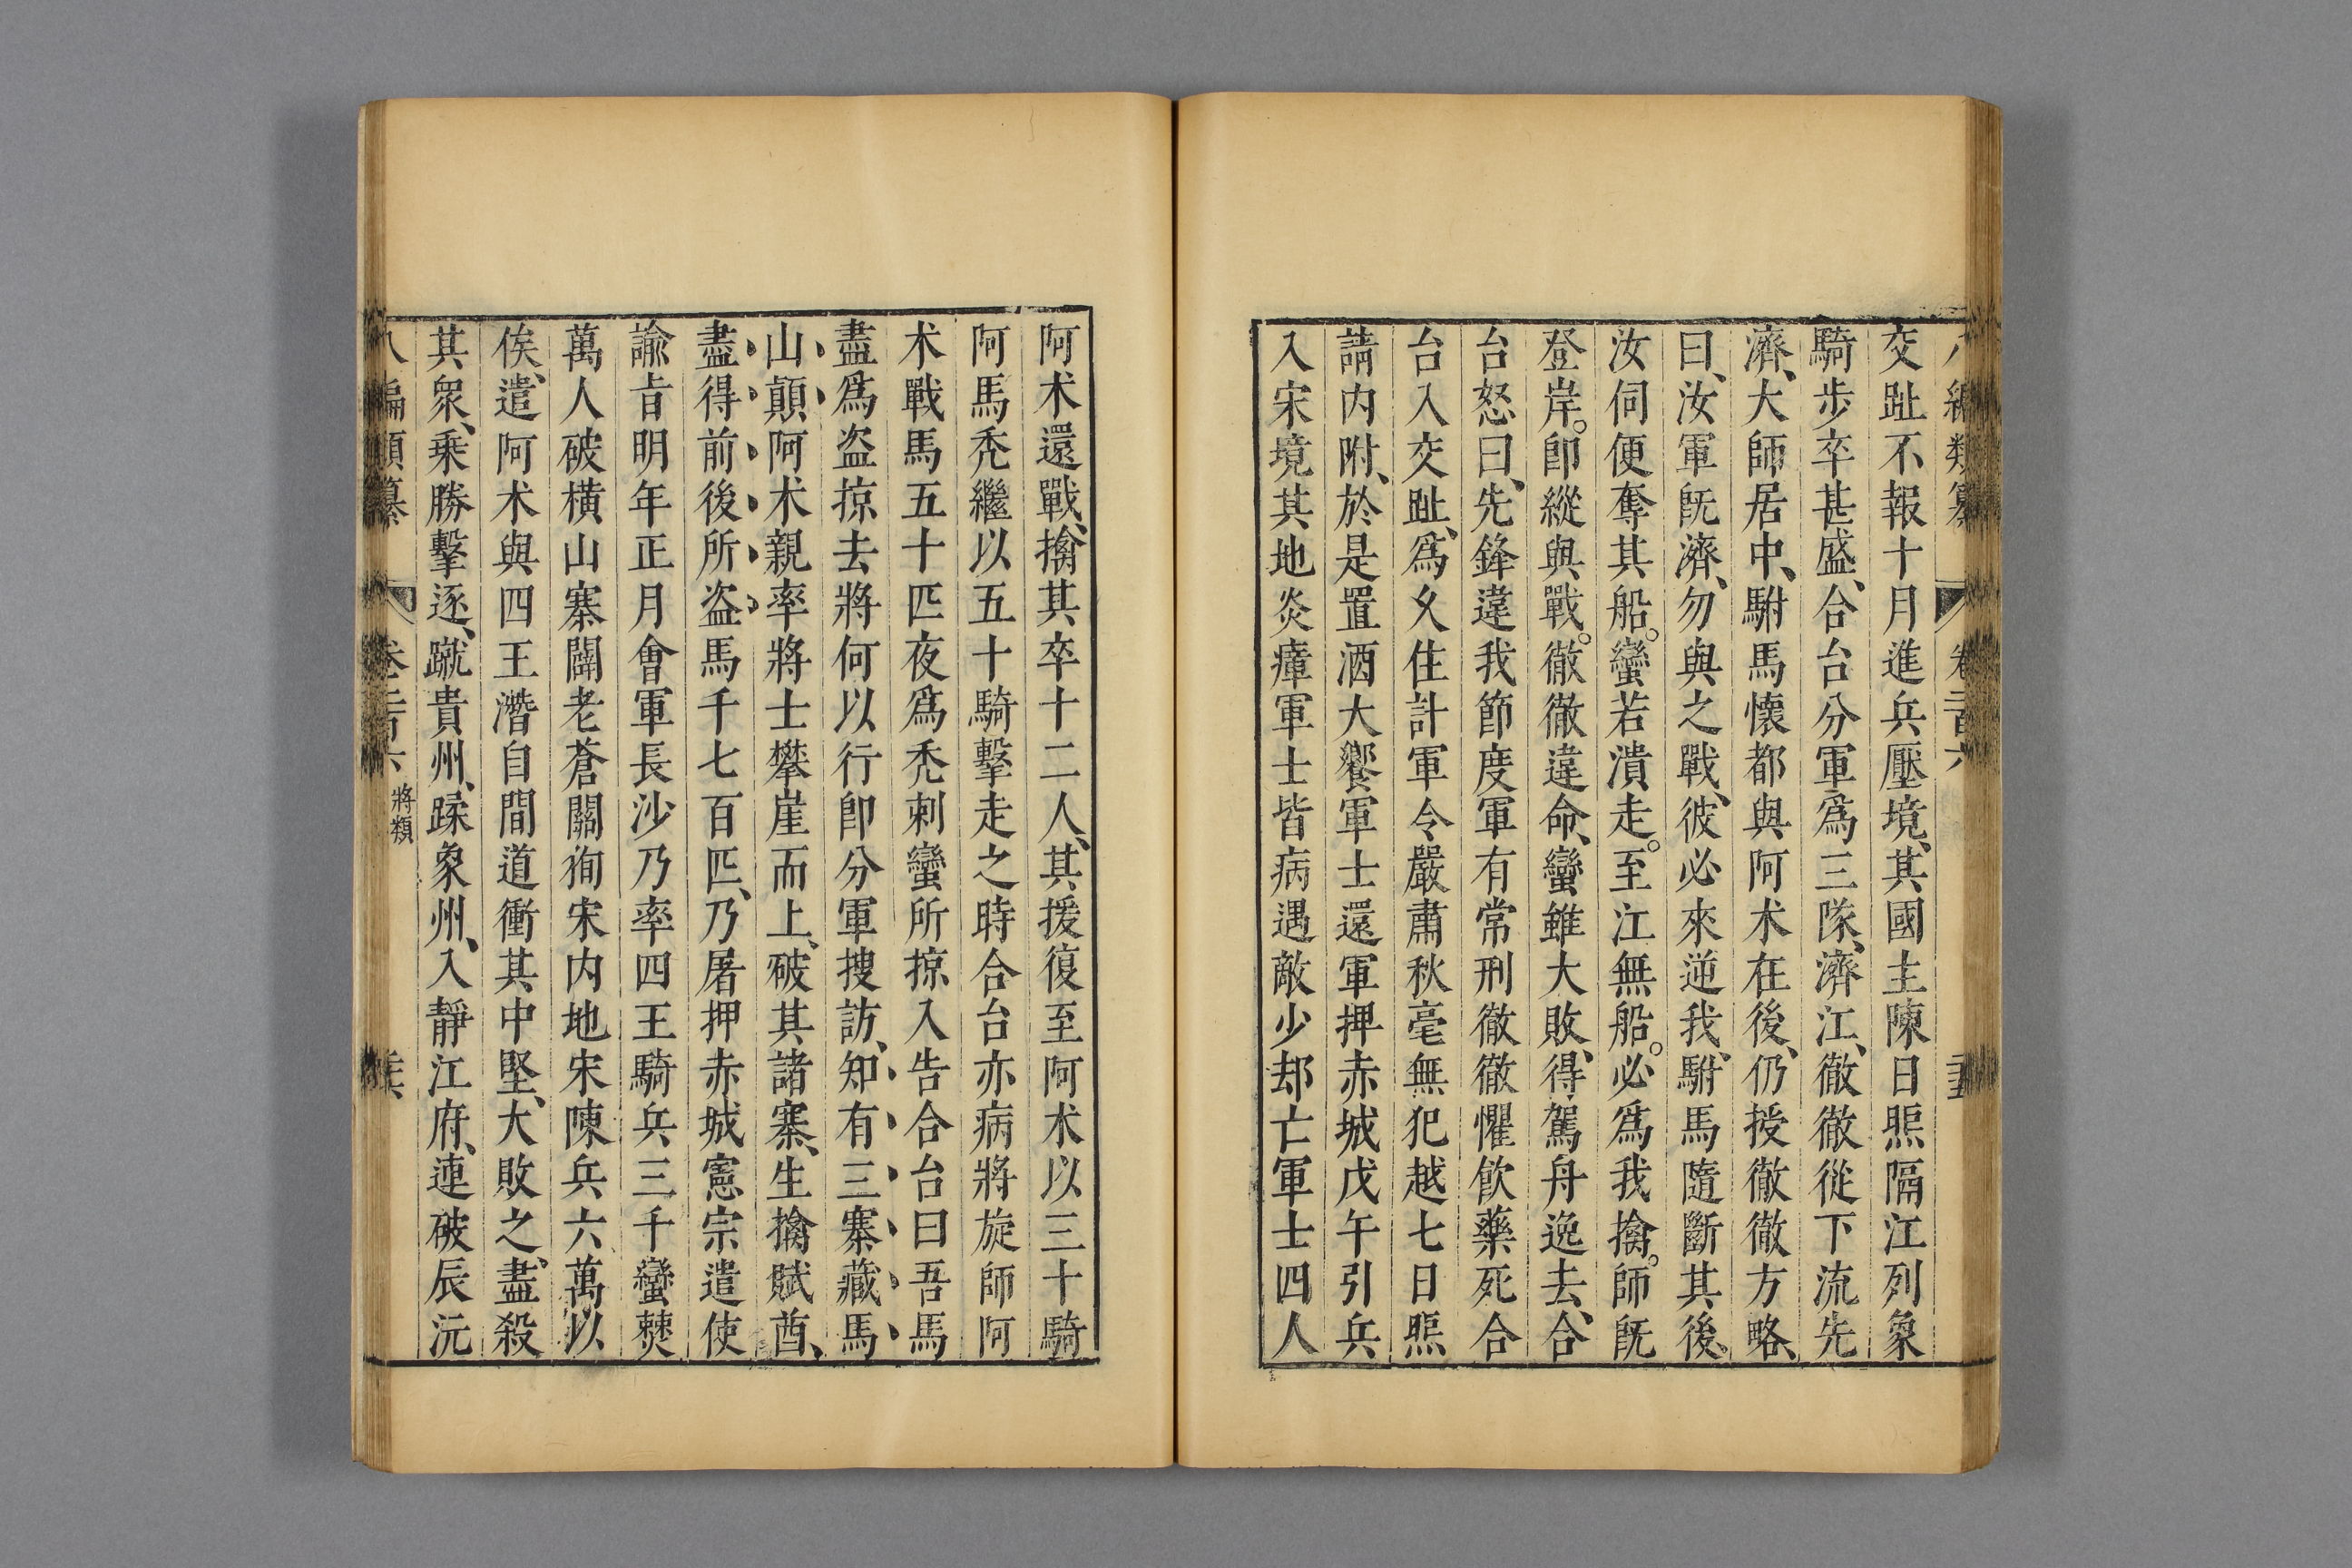 八編類纂 卷二百六
交趾不報十月進兵壓境、其國主陳日煚隔江列象
騎步卒甚盛、合台分軍爲三隊、濟江、徹徹從下流先
濟、大師居中、駙馬懷都與阿术在後、仍授徹徹方略、
曰、汝軍旣濟、勿與之戰、彼必來逆我、駙馬隨斷其後。
汝伺便奪其船。蠻若潰走。至江無船。必爲我擒。師旣
登岸。卽縱與戰。徹徹違命、蠻雖大敗、得駕舟逸去、合
台怒曰、先鋒違我節度軍有常刑徹徹懼飮藥死合
台入交趾、爲久住計軍令嚴肅秋毫無犯越七日煚
請内附、於是置酒大饗軍士還軍押赤城戊午引兵
入宋境其地炎瘴軍士皆病遇敵少却亡軍士四人
阿术還戰、擒其卒十二人、其援復至阿术以三十騎
阿馬禿繼以五十騎擊走之時合台亦病將旋師阿
术戰馬五十匹夜爲禿剌蠻所掠入告合台曰吾馬
盡爲盜掠去將何以行卽分軍搜訪、知有三寨藏馬
山顚阿术親率將士攀崖而上、破其諸寨、生擒賊酋、
盡得前後所盜馬千七百匹、乃屠押赤城憲宗遣使
諭㫖明年正月會軍長沙乃率四王騎兵三千蠻僰
萬人破橫山寨闢老蒼關徇宋内地宋陳兵六萬以
俟、遣阿术與四王潛自間道衝其中堅、大敗之、盡殺
其衆、乗勝擊逐、蹴貴州、蹂象州、入靜江府、連破辰沅
八編類纂 卷二百六 將類